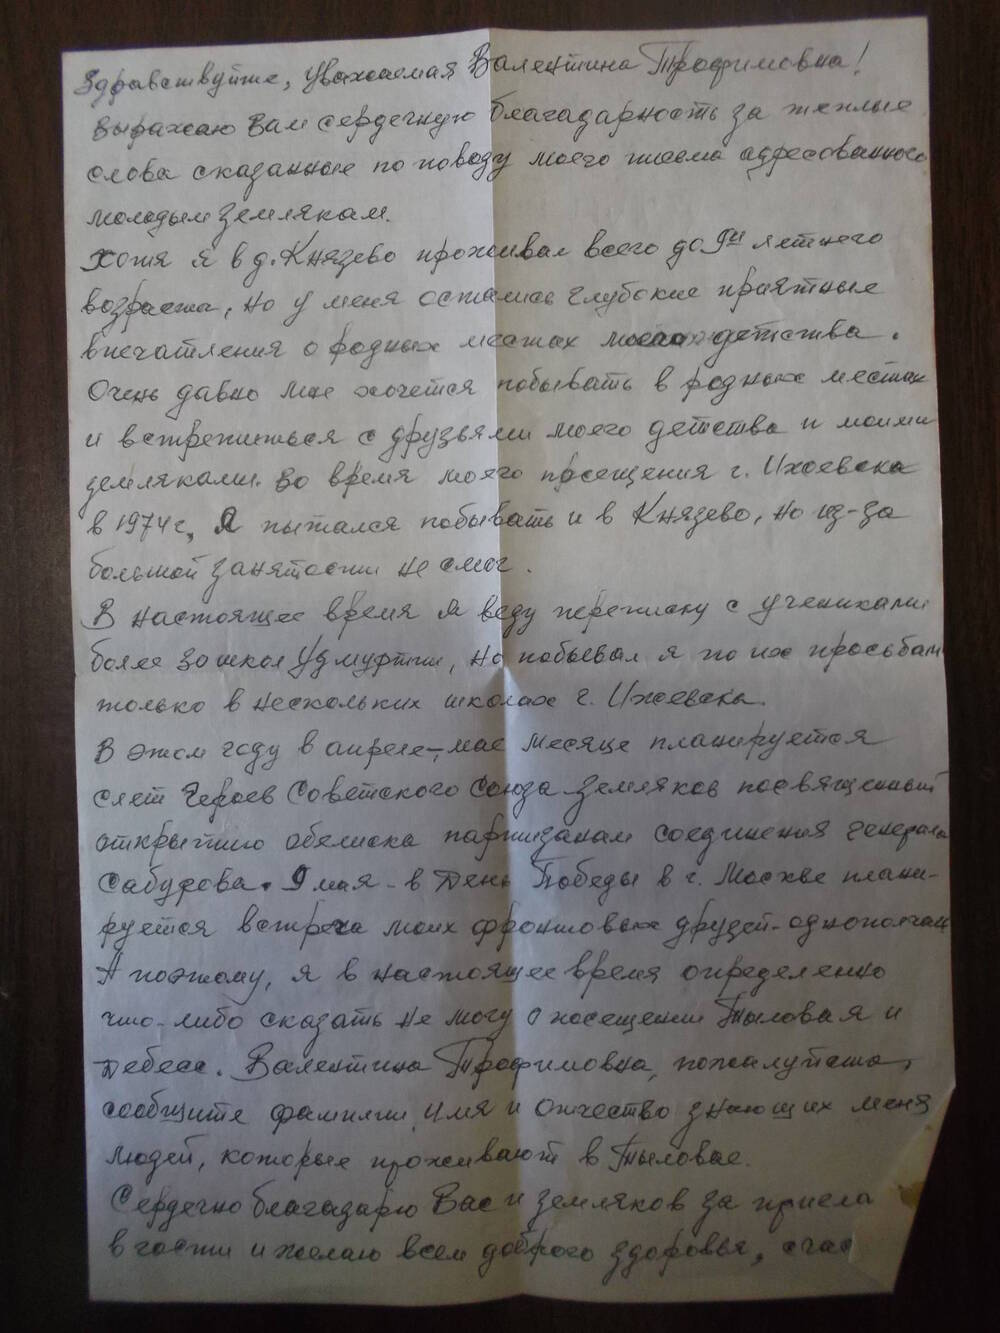 Здравствуйте, уважаемая Валентина Трофимовна!
Выражаю Вам сердечную благадарность за теплые
слова сказанные по поводу моего письма адресованного
молодым землякам.
Хотя я в д. Князево проживал всего до 9ти летнего
возраста, но у меня остались глубокие приятные
впечатления о родных местах моего детства.
Очень давно мне хочется побывать в родных местах
и встретиться с друзьями моего детства и моими
земляками. Во время моего посещения г. Ижевска
в 1974 г, Я пытался побывать и в Князево, но из-за
большой занятости не смог.
В настоящее время я веду переписку с учениками
более 30 школ Удмуртии, но побывал я по их просьбам
только в нескольких школах г. Ижевска.
В этом году в апреле-, мае месяце планируется
слет Героев Советского Союза земляков посвященный
открытию обелиска партизанам соединения генерала
Сабурова. 9 мая - в День Победы в г. Москве плани-
руется встреча моих фронтовых друзей-однополчан
А поэтому, я в настоящее время определенно
что-либо сказать не могу о посещении Тыловая и
Дебесс. Валентина Трофимовна, пожалуйста,
сообщите фамилии, имя и отчество знающих меня
людей, которые проживают в Тыловае.
Сердечно благадарю Вас и земляков за пригла
в гости и желаю всем доброго здоровья, счас